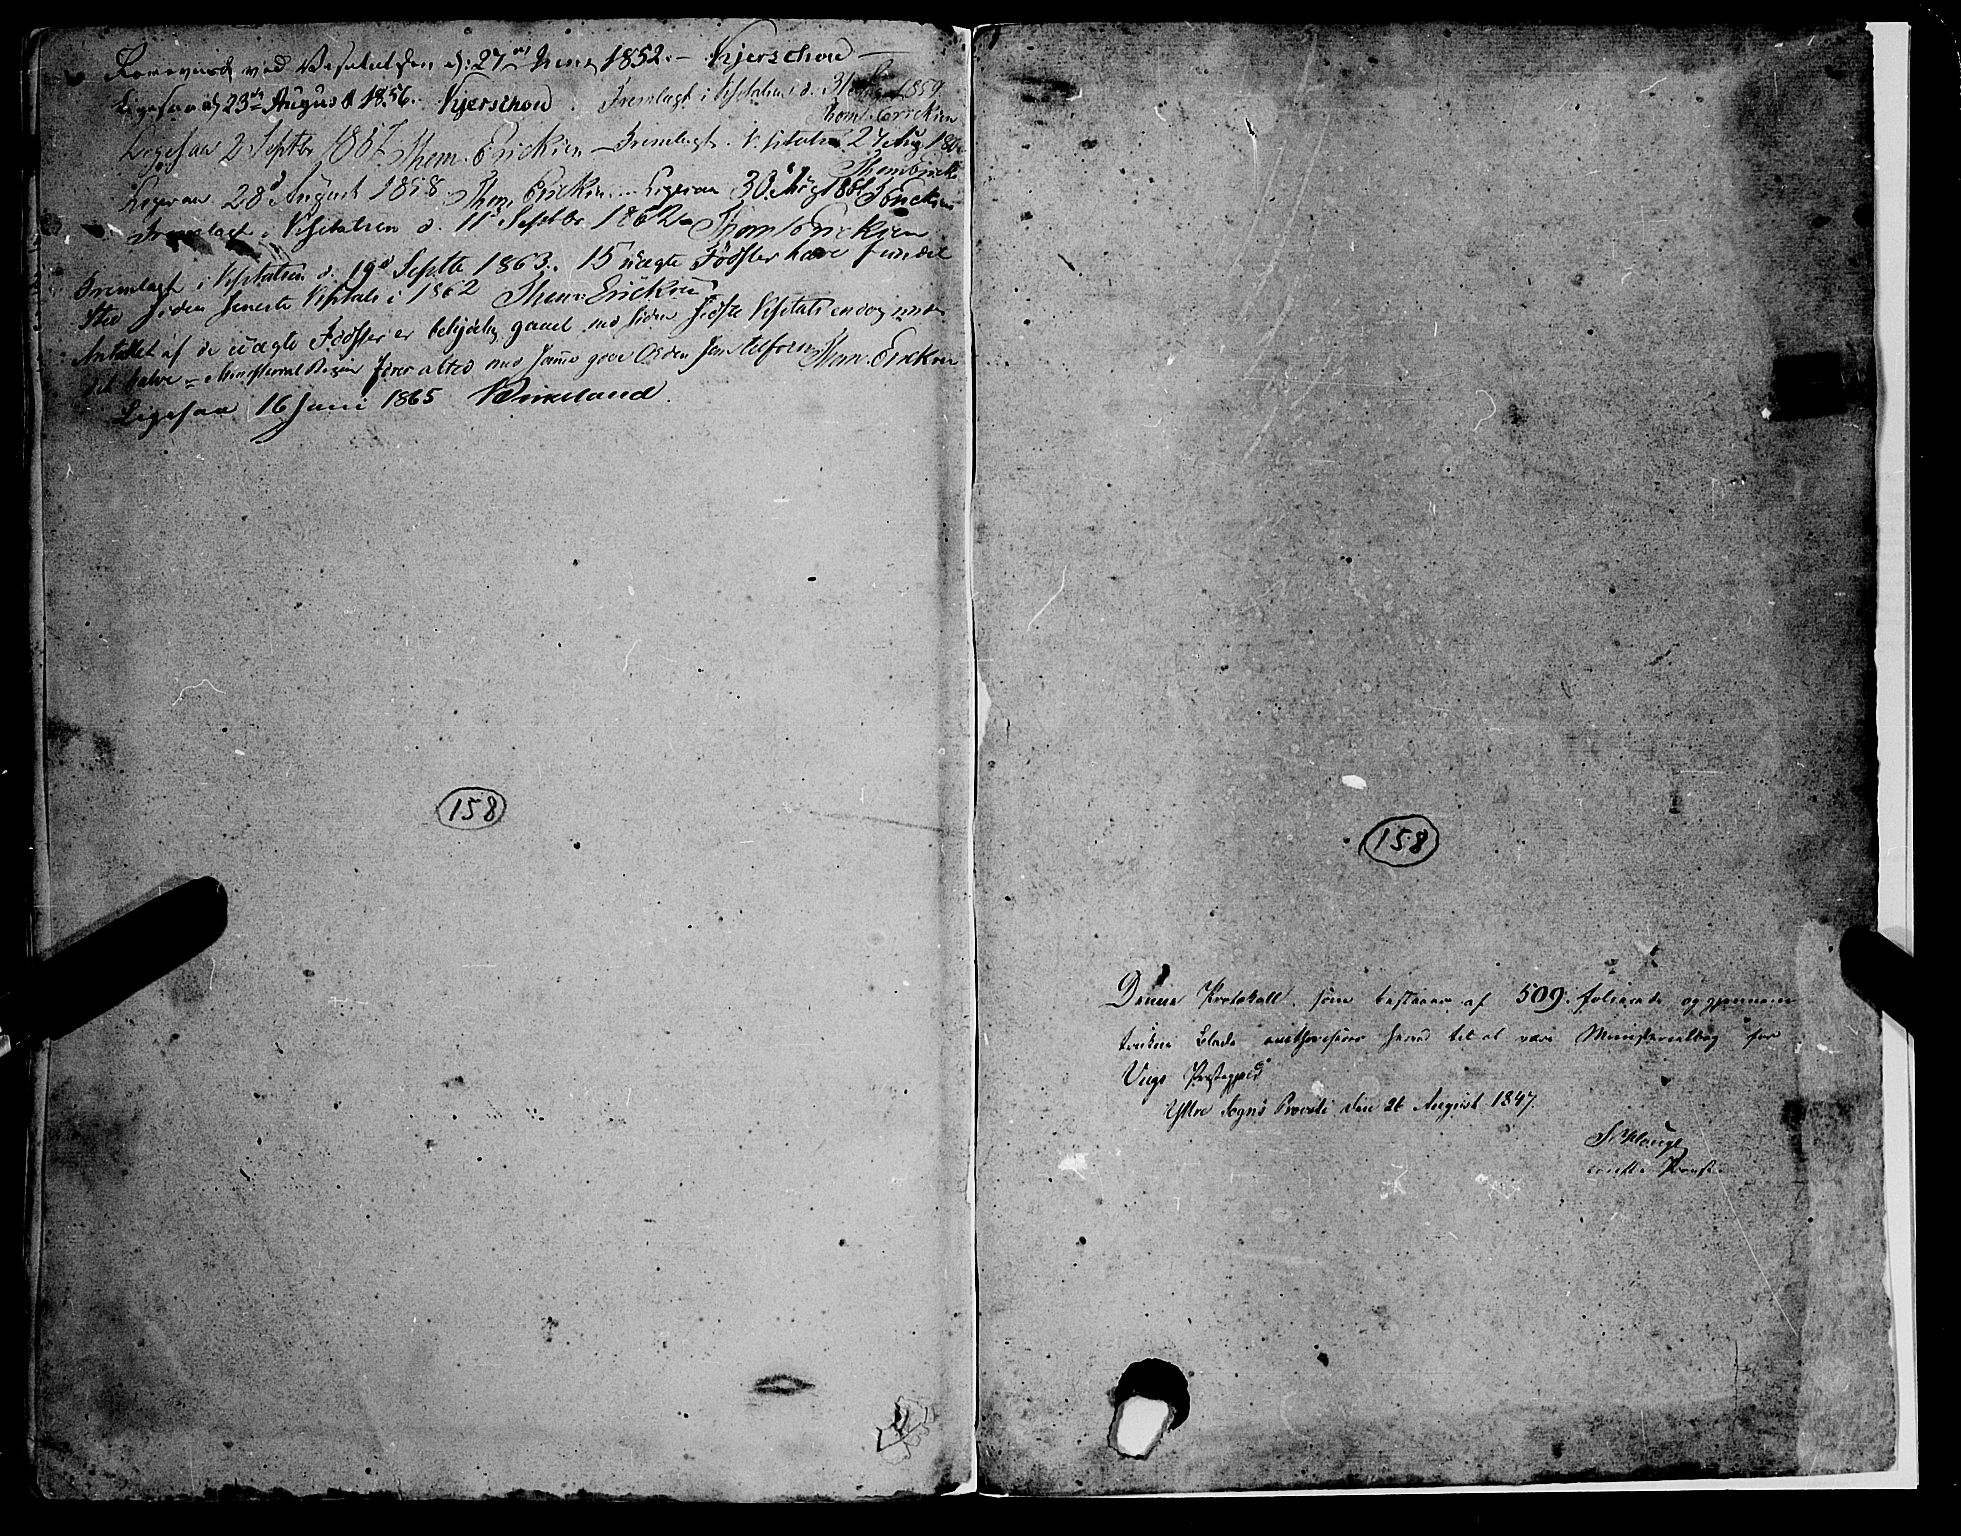 Foreviist ved Visitatsen d: 27de Juni 1852. – Kjerschou –
Ligesaa d 23de August 1856. Kjerschou. Fremlagt i Visitatsen d. 31 1859.
Thom: Ericksen
Ligesaa 2 Septbr 1857 Thom. Ericksen – Fremlagt i Visitatsen 27 Aug. 186
Thom: Ericks
Ligesaa 28d August 1858. Thom Ericksen – Ligesaa 30. Aug 1861 T Ericksen
Fremlagt i Visitatsen d. 11 Septbr. 1862 Thom Ericksen
Fremlagt i Visitatsen d. 19d Septbr 1863. 15 uægte Fødsler have fundet
Sted siden seneste Visitats i 1862 Thom: Ericksen
Antallet af de uægte Fødsler er betydelig gaaet ned siden sidste Visitats endog under
det halve – Ministerial Bogen føres altid med samme gode Orden som tilforn Thom. Ericksen
Ligesaa 16 Juni 1865 Birkeland.
158
158
Denne Protokoll, som bestaaer af 509. folierede og gjennem
trukne Blade authoriseres herved til at være Ministerialbog for
Viigs Præstegjeld
Yttre Sogns Provsti den 26 August 1847.
const. Provst